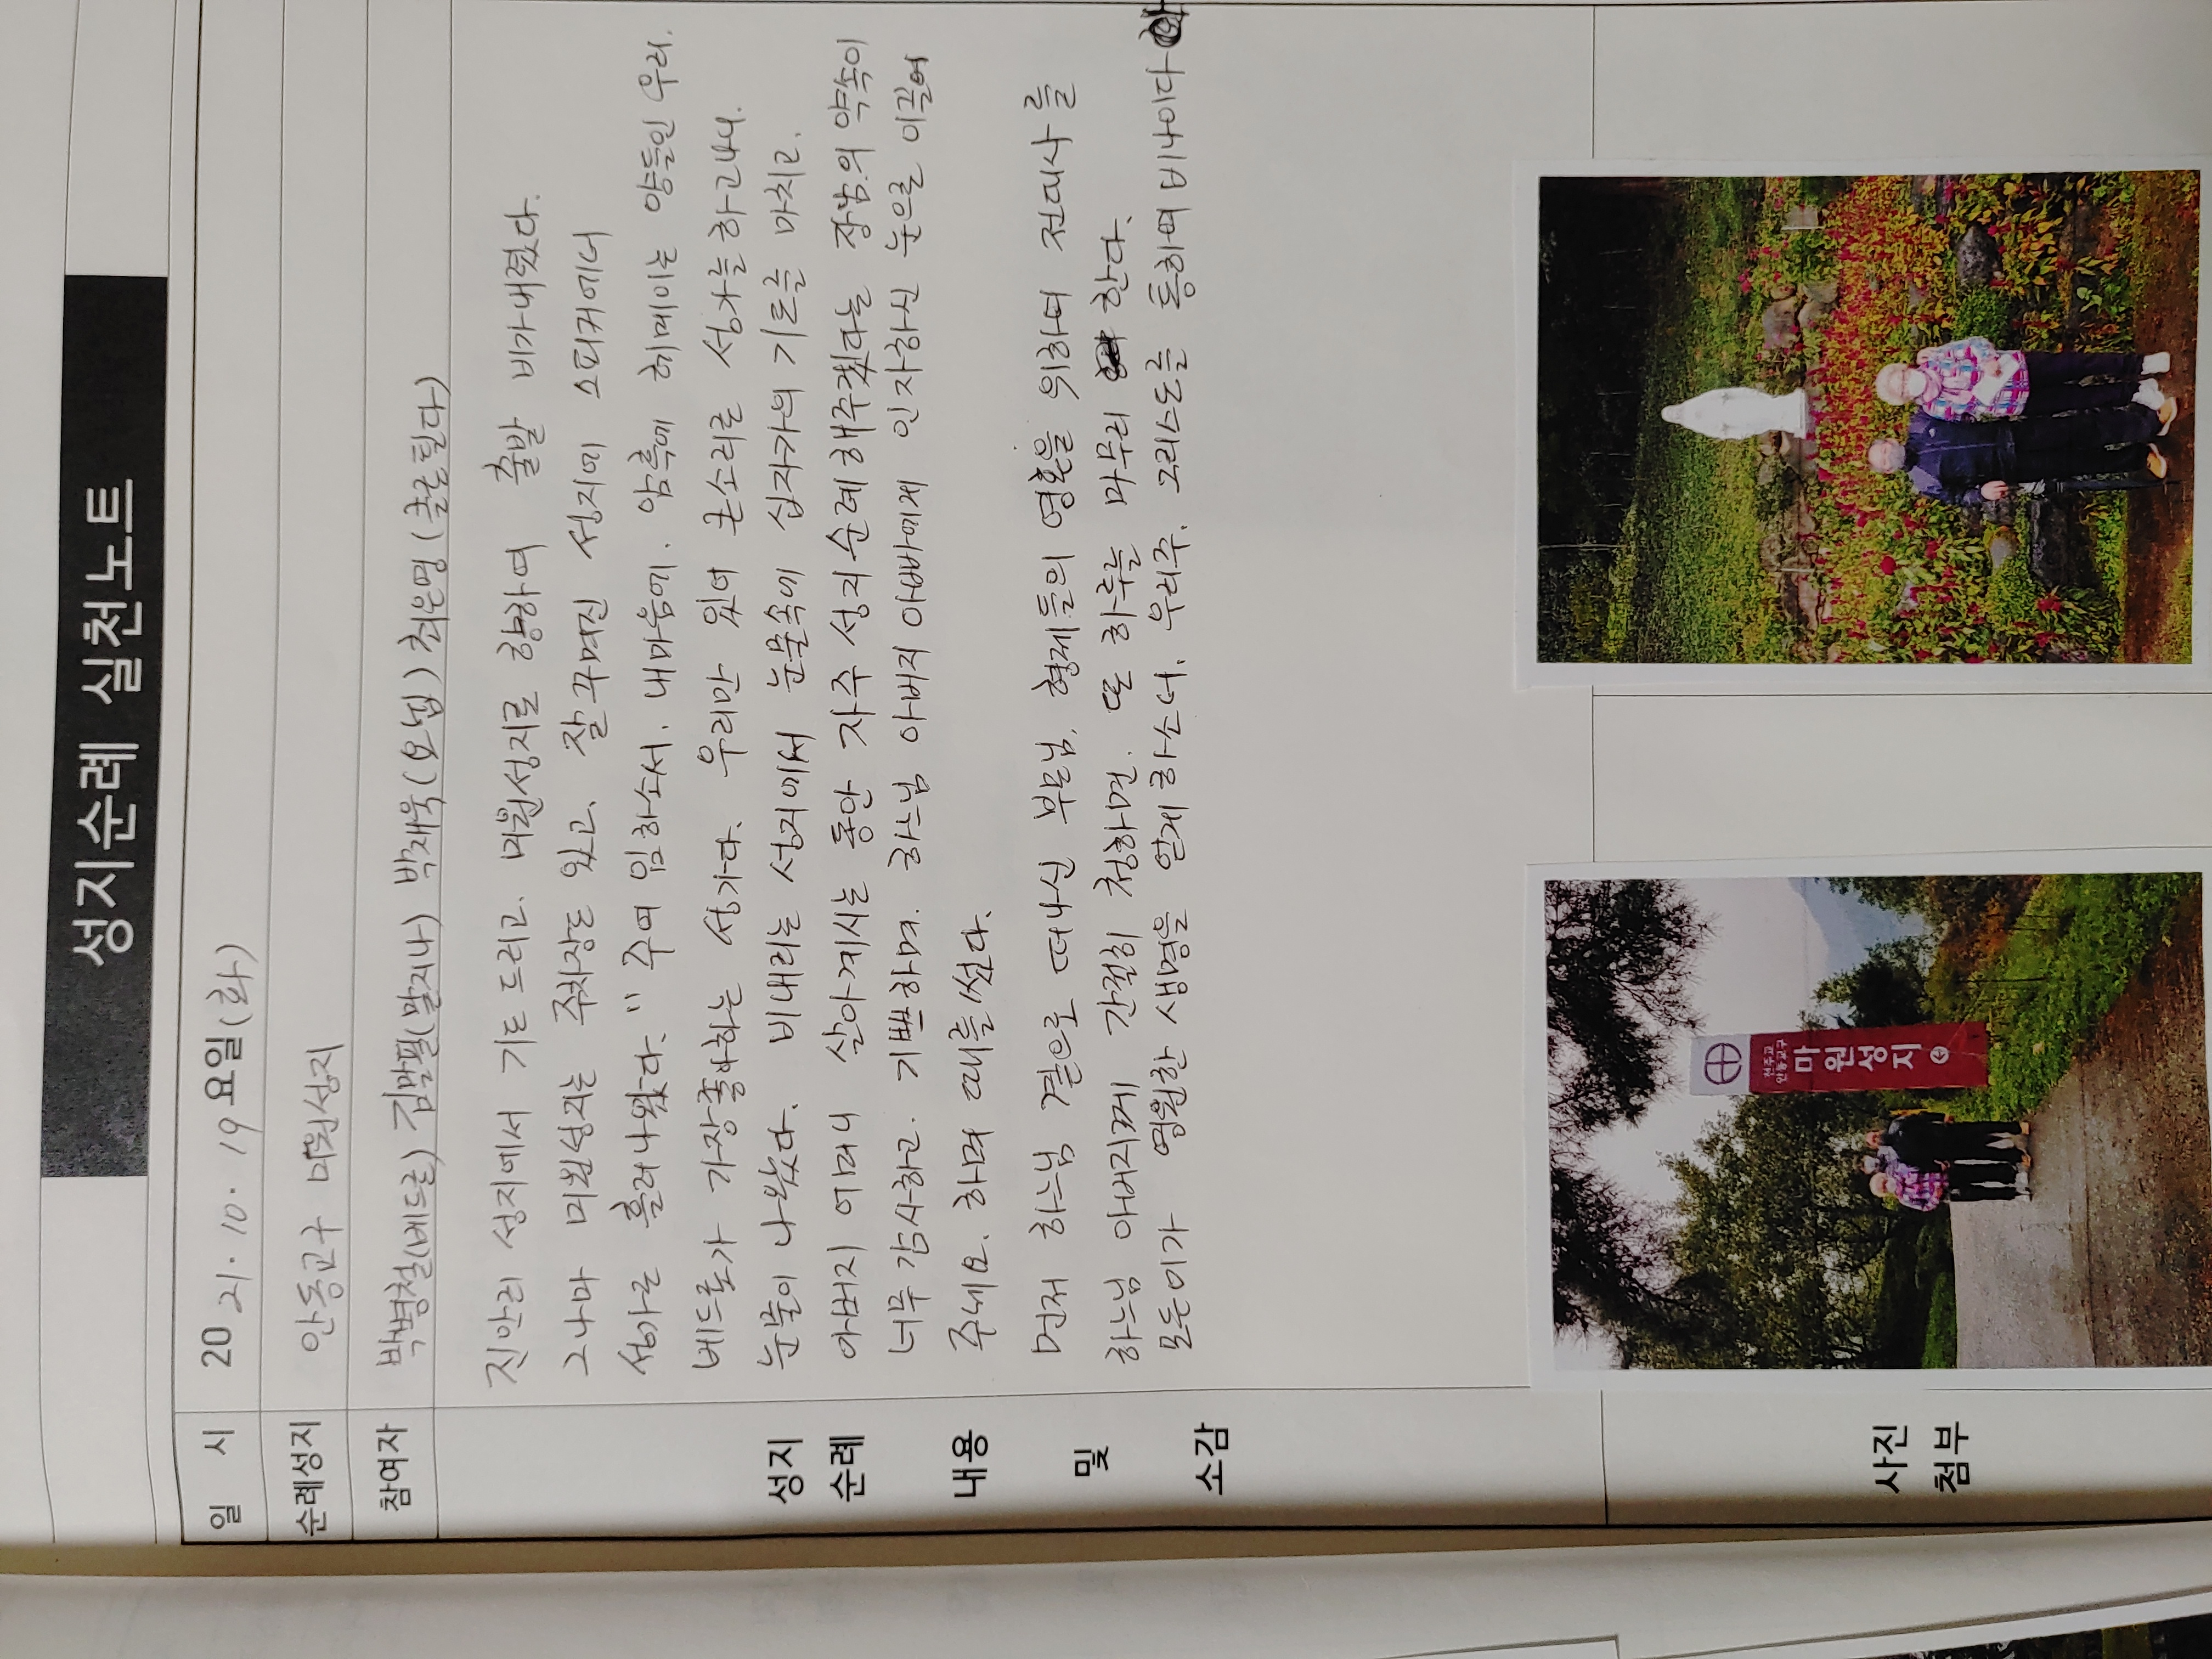 성지순례 실천노트
일 시 2021. 10. 19 요일(화)
순례성지 안동교구 마원성지
참여자 박병철(베드로) 김말필(말지나) 박재욱(요셉) 최은영(클로틸다)
진안리 성지에서 기도 드리고. 마원성지로 향하여 출발 비가내렸다.
그나마 마원성지는 주차장도 있고. 잘 꾸며진 성지에 스피커에서
성가로 흘러나왔다. " 주여 임하소서. 내마음에. 암흑에 헤메이는 양들인 우리.
베드로가 가장좋아하는 성가다. 우리만 있어 큰소리로 성가를 하고나니.
눈물이 나왔다. 비내리는 성지에서 눈물속에 십자가의 기도를 마치고.
아버지 어머니 살아계시는 동안 자주 성지순례해주겠다는 장남의 약속이
너무 감사하고. 기쁘하며. 하느님 아버지 아빠에게 인자하신 눈으로 이끌어
주세요. 하며 떼를 썼다.
먼저 하느님 곁으로 떠나신 부모님. 형제들의 영혼을 위하여 전대사를
하느님 아버지께 간절히 청하면. 또 하루를 마무리 한다.
모든이가 영원한 생명을 얻게 하소서. 우리주. 그리스도를 통하여 비나이다
성지
순례
내용
및
소감
사진
첨부
천주교
안동교구
마원성지